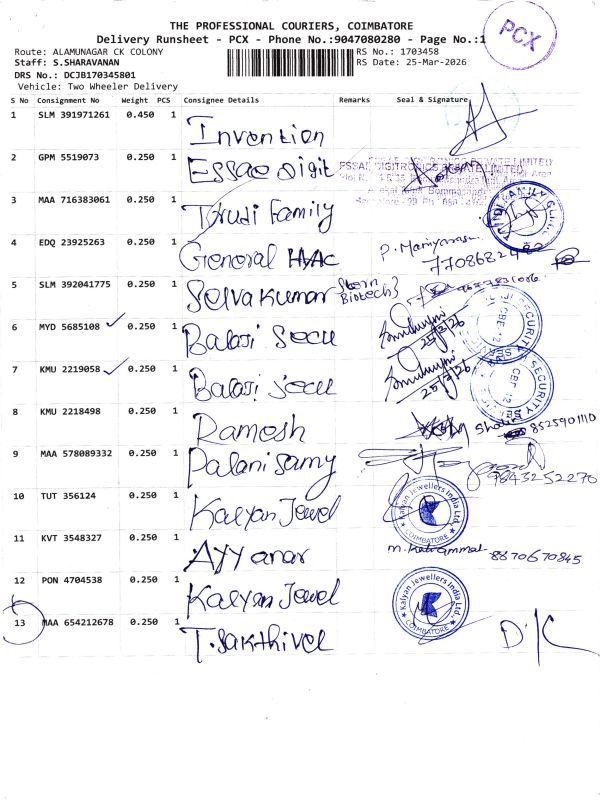 THE PROFESSIONAL COURIERS, COIMBATORE
Delivery Runsheet - PCX - Phone No.:9047080280 - Page No.:1
PCX
Route: ALAMUNAGAR CK COLONY
RS No.: 1703458
Staff: S.SHARAVANAN
RS Date: 25-Mar-2026
DRS No.: DCJB170345801
Vehicle: Two Wheeler Delivery
S No Consignment No Weight PCS Consignee Details Remarks Seal & Signature
1 SLM 391971261 0.450 1 Invention
2 GPM 5519073 0.250 1 Essae Digit
3 MAA 716383061 1 0.250 Thudi Family
4 EDQ 23925263 0.250 1 General HVAC P. Mariyarasu
7708682482
5 SLM 392041775 0.250 1 Selvakumar Stern Biotech
6 MYD 5685108 0.250 1 Balaji Secu 25/3/26
SECURITY CBE-12
7 KMU 2219058 0.250 1 Balaji Secu 25/3/26
SECURITY CBE 12
8 KMU 2218498 0.250 1 Ramesh 8525901110
9 MAA 578089332 0.250 1 Palanisamy
9843252270
10 TUT 356124 0.250 1 Kalyan Jewel
Kalyan Jewellers India Ltd. COIMBATORE
11 KVT 3548327 0.250 1 Ayyanar 8870670845
12 PON 4704538 0.250 1 Kalyan Jewel
Kalyan Jewellers India Ltd. COIMBATORE
13 MAA 654212678 0.250 1 T.Sakthivel